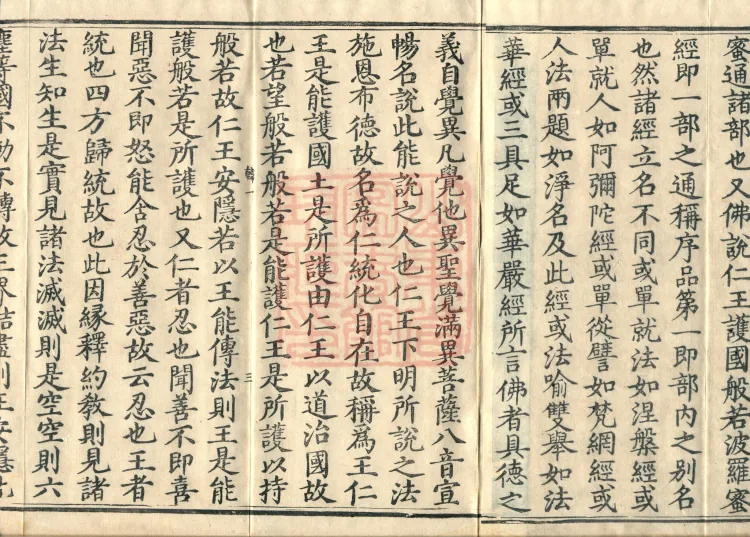 蜜通諸部也又佛說仁王護國般若波羅蜜
經即一部之通稱序品第一即部內之別名
也然諸經立名不同或單就法如涅槃經或
單就人如阿彌陀經或單從譬如梵網經或
人法兩題如淨名及此經或法喻雙舉如法
華經或三具足如華嚴經所言佛者具德之
義自覺異凡覺他異聖覺滿異菩薩八音宣
暢名說此能說之人也仁王下明所說之法
施恩布德故名爲仁統化自在故稱爲王仁
王是能護國土是所護由仁王以道治國故
也若望般若般若是能護仁王是所護以持
般若故仁王安隱若以王能傳法則王是能
護般若是所護也又仁者忍也聞善不即喜
聞惡不即怒能含忍於善惡故云忍也王者
統也四方歸統故也此因緣釋約教則見諸
法生知生是實見諸法滅滅則是空空則六
塵等國不動不轉故三界結盡則王安隱此